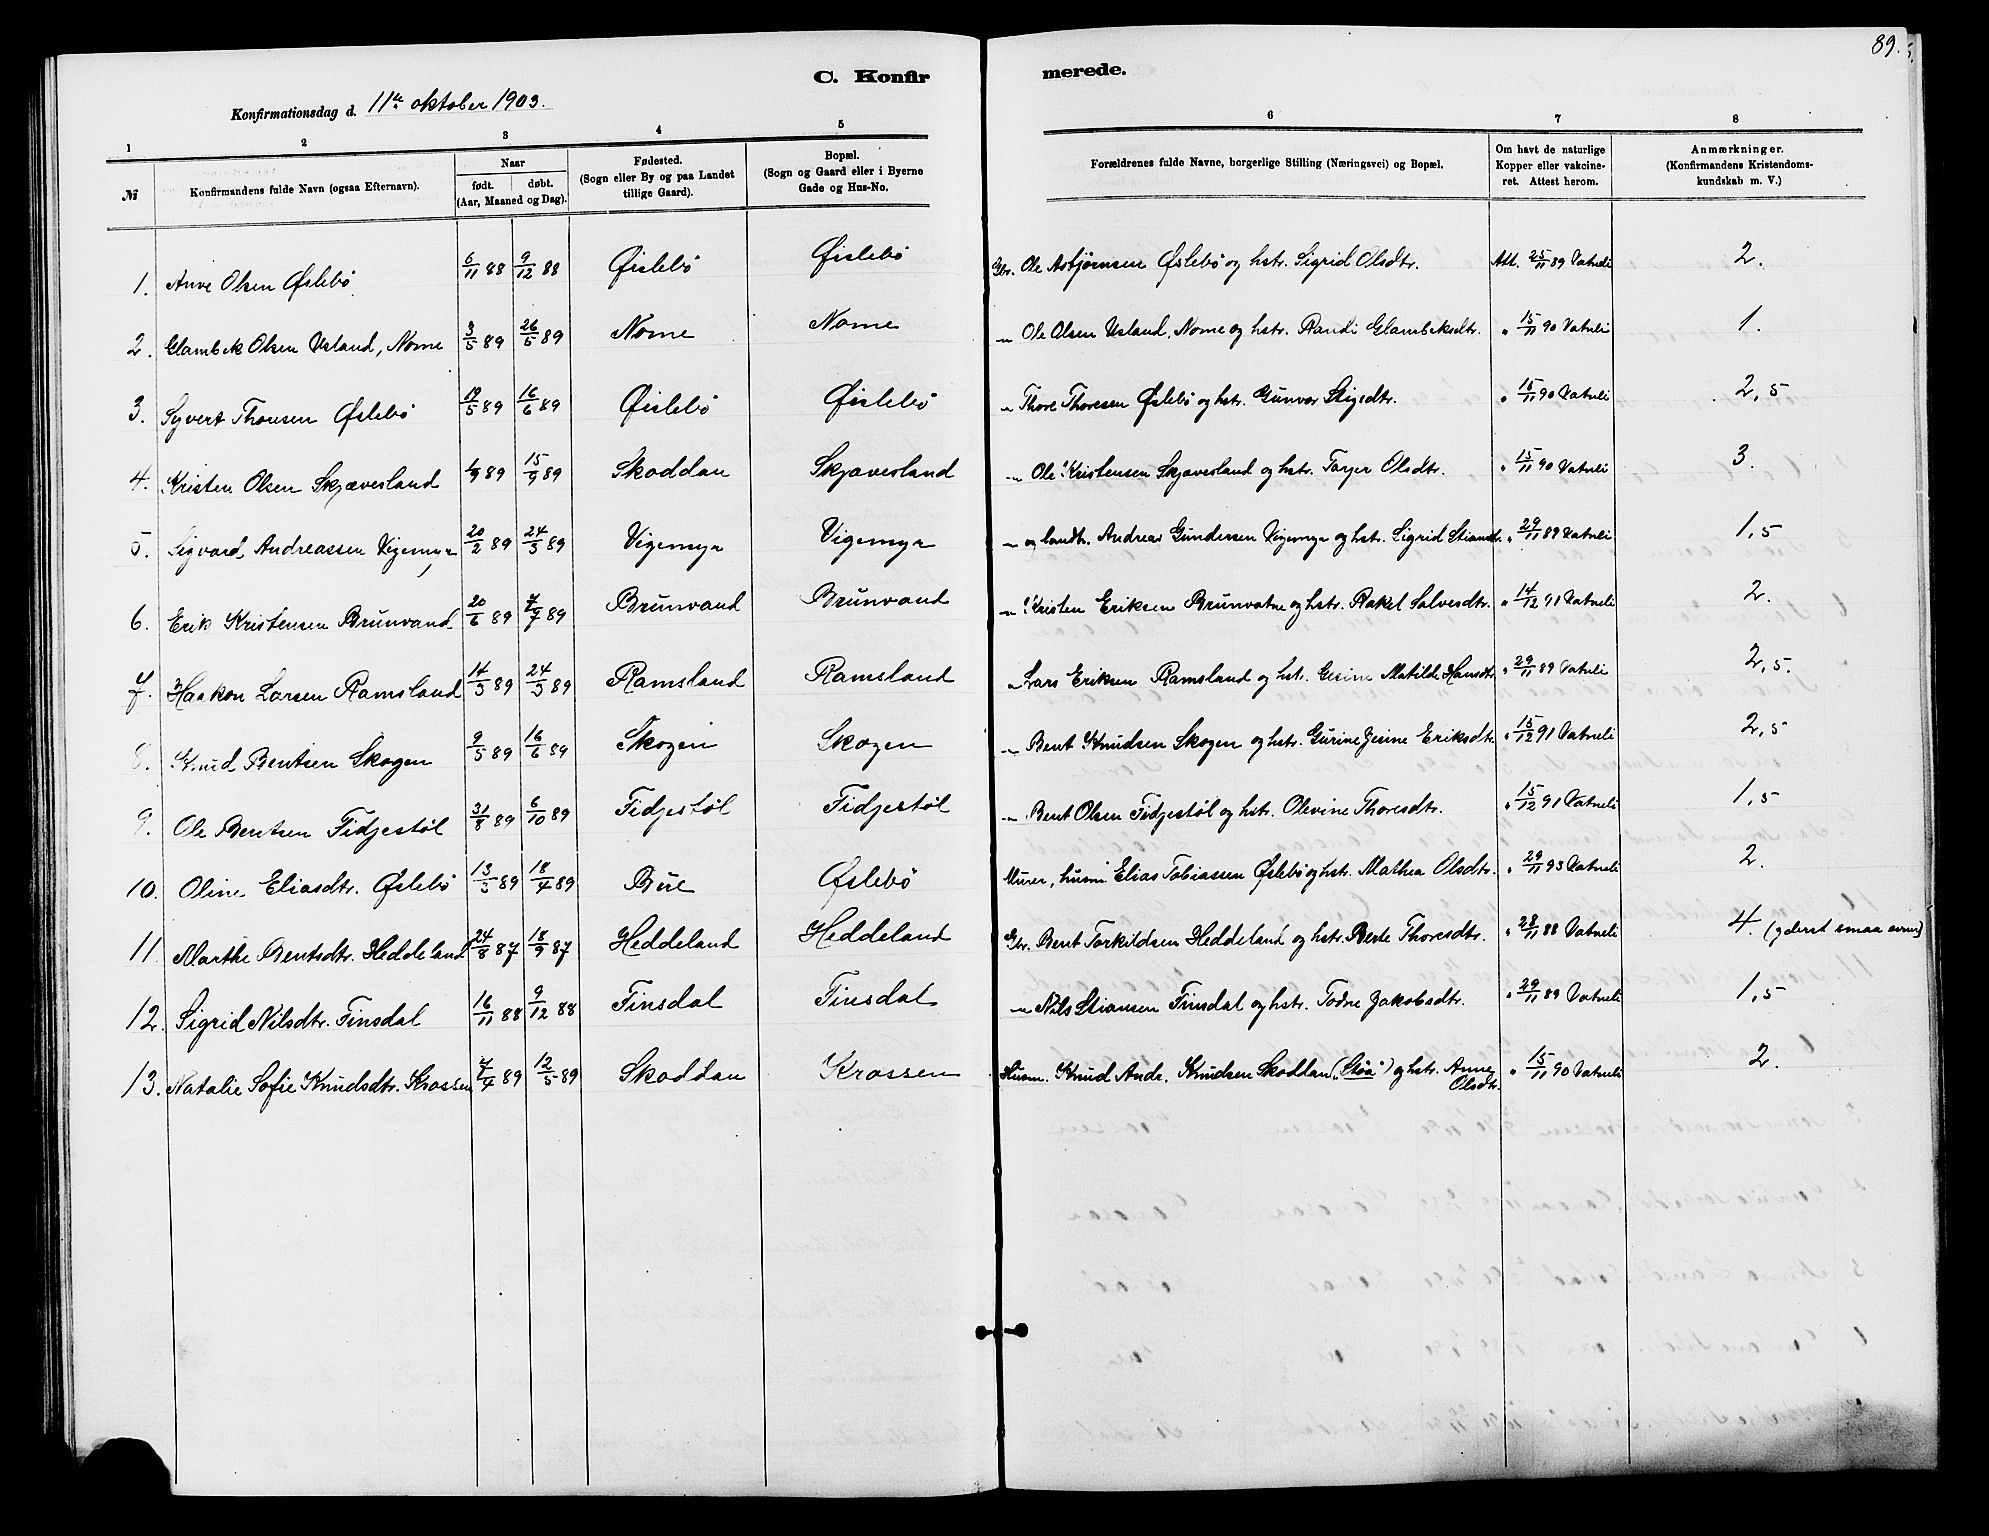 89.
C. Konfir merede.
Konfirmationsdag d. 11te oktober 1903.
1 2 3 4 5 6 7 8
№ Konfirmandens fulde Navn (ogsaa Efternavn). Naar født. døbt. (Aar, Maaned og Dag). Fødested. (Sogn eller By og paa Landet tillige Gaard). Bopæl. (Sogn og Gaard eller i Byerne Gade og Hus-No. Forældrenes fulde Navne, borgerlige Stilling (Næringsvei) og Bopæl. Om havt de naturlige Kopper eller vakcineret. Attest herom. Anmærkninger. (Konfirmandens Kristendomskundskab m. V.)
1. Anve Olsen Øslebø 6/11 88 9/12 88 Øislebø Øislebø Gbr. Ole Asbjørnsen Øslebø og hstr. Sigrid Olsdtr. Att. 25/11 89 Vatneli 2.
2. Glambek Olsen Usland, Nome 3/5 89 26/5 89 Nome Nome " Ole Olsen Usland, Nome og hstr. Randi Glambeksdtr. " 15/11 90 Vatneli 1.
3. Syvert Thorsen Øslebø 19/5 89 16/6 89 Øislebø Øislebø " Thore Thoresen Øslebø og hstr. Gunvor Stigsdtr. " 15/11 90 Vatneli 2,5
4. Kristen Olsen Skjævesland 1/9 89 15/9 89 Skoddan Skjævesland " Ole Kristensen Skjævesland og hstr. Tarjer Olsdtr. " 15/11 90 Vatneli 3.
5. Sigvard Andreassen Vigemyr 20/2 89 24/3 89 Vigemyr Vigemyr " og landh. Andreas Gundersen Vigemyr og hstr. Sigrid Stiansdtr. " 29/11 89 Vatneli 1,5
6. Erik Kristensen Brunvand 20/6 89 7/7 89 Brunvand Brunvand " Kristen Eriksen Brunvatne og hstr. Rakel Salvesdtr. " 14/12 91 Vatneli 2.
7. Haakon Larsen Ramsland 14/3 89 24/3 89 Ramsland Ramsland " Lars Eriksen Ramsland og hstr. Gesine Matilde Hansdtr. " 29/11 89 Vatneli 2,5.
8. Knud Bentsen Skogen 9/5 89 16/6 89 Skogen Skogen " Bent Knudsen Skogen og hstr. Gurine Jesine Eriksdtr. " 15/12 91 Vatneli 2,5
9. Ole Bentsen Fidjestøl 31/8 89 6/10 89 Fidjestøl Fidjestøl " Bent Olsen Fidjestøl og hstr. Olevine Thoresdtr. " 15/12 91 Vatneli 1,5
10. Oline Eliasdtr. Øslebø 13/3 89 18/4 89 Bue Øslebø Murer, husm. Elias Tobiassen Øslebø og hstr. Mathea Olsdtr. " 29/11 93 Vatneli 2.
11. Marthe Bentsdtr. Heddeland 24/8 87 18/9 87 Heddeland Heddeland Gbr. Bent Torkildsen Heddeland og hstr. Berte Thoresdtr. " 28/11 88 Vatneli 4. (yderst smaa evner)
12. Sigrid Nilsdtr. Finsdal 16/11 88 9/12 88 Finsdal Finsdal " Nils Stiansen Finsdal og hstr. Todne Jakobsdtr. " 29/11 89 Vatneli 1,5
13. Natalie Sofie Knudsdtr. Krossen 7/4 89 12/5 89 Skoddan Krossen Husm. Knud Andr. Knudsen Skoddan ("Støa") og hstr. Anne Olsdtr. " 15/11 90 Vatneli 2.